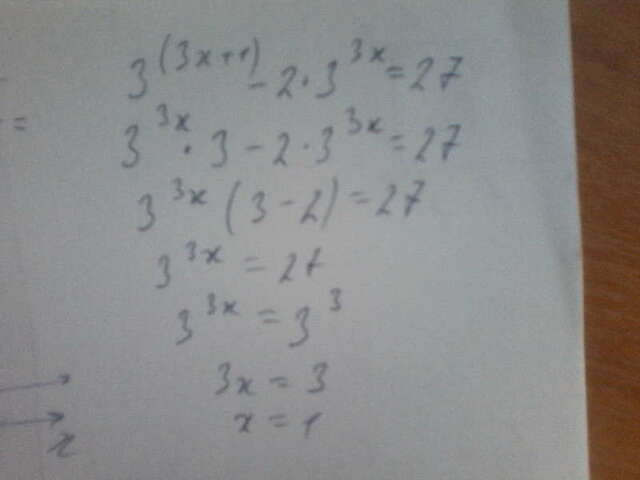 3^(3x+1) - 2·3^3x = 27
3^3x · 3 - 2·3^3x = 27
3^3x (3-2) = 27
3^3x = 27
3^3x = 3^3
3x = 3
x = 1
=
x